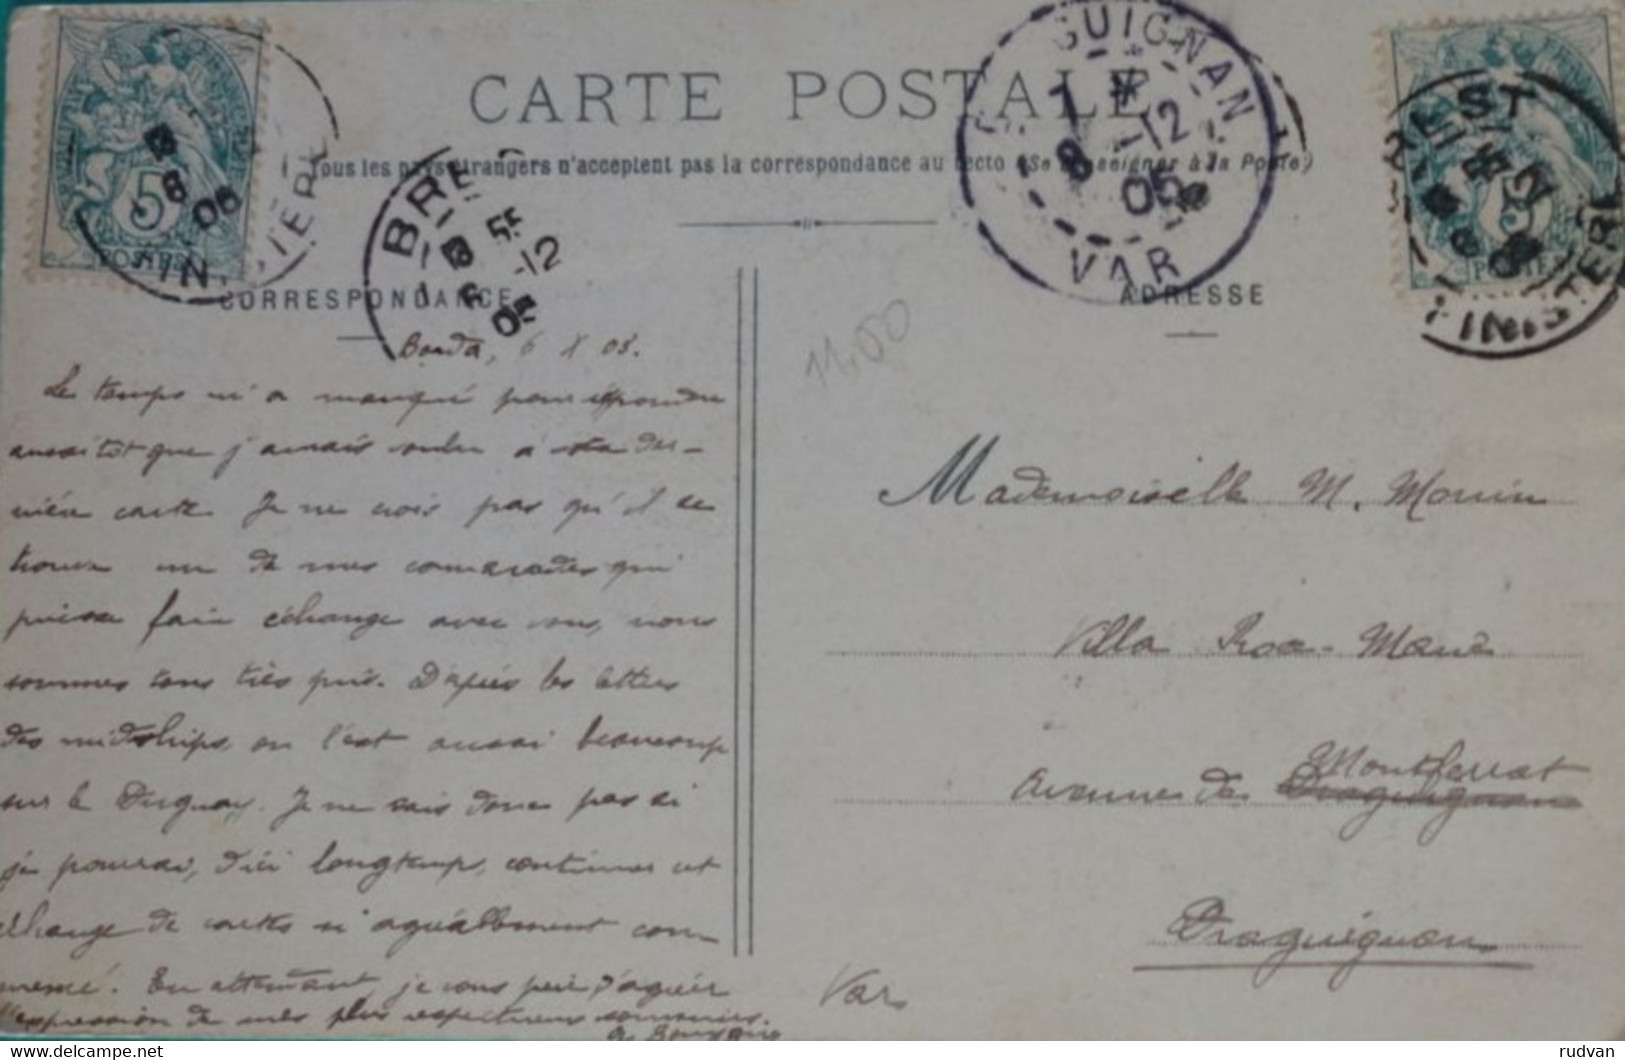 CARTE POSTALE
Tous les pays étrangers n'acceptent pas la correspondance au recto (Se renseigner à la Poste)
CORRESPONDANCE
ADRESSE
BREST
5
6
05
FINISTERE
BREST
6 -12
05
DRAGUIGNAN
8 -12
05
VAR
BREST
FINISTERE
11,00
6 X 05.
Le temps m'a manqué pour répondre
aussitôt que j'aurais voulu à votre der-
nière carte. Je ne crois pas qu'il se
trouve un de mes camarades qui
puisse faire échange avec vous, nous
sommes tous très pris. D'après les lettres
des midships, on l'est aussi beaucoup
sur le Duguay. Je ne sais donc pas si
je pourrai, d'ici longtemps, continuer cet
échange de cartes si agréablement com-
mencé. En attendant, je vous prie d'agréer
l'expression de mes plus respectueux souvenirs.
Mademoiselle M. Mourin
Villa Rosa-Marie
Avenue de Montferrat
Draguignan
Var
delcampe.net
rudvan